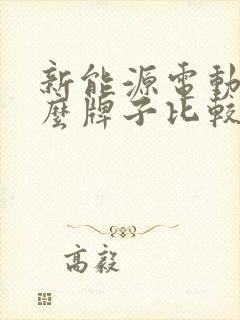 新能源電動
麼牌子比較
高毅